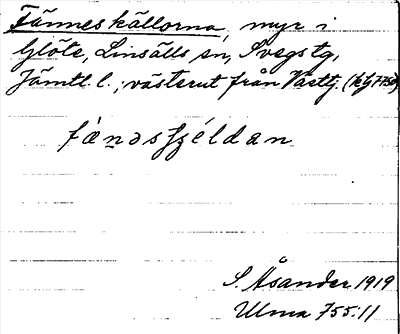 Tännes källorna, myr i
Glöte, Linsälls sn, Svegs tg,
Jämtl. l.; västerut från Västtj.
fǽnǝsʃȷéldan
S. Åsander 1919
Ulma 755:11